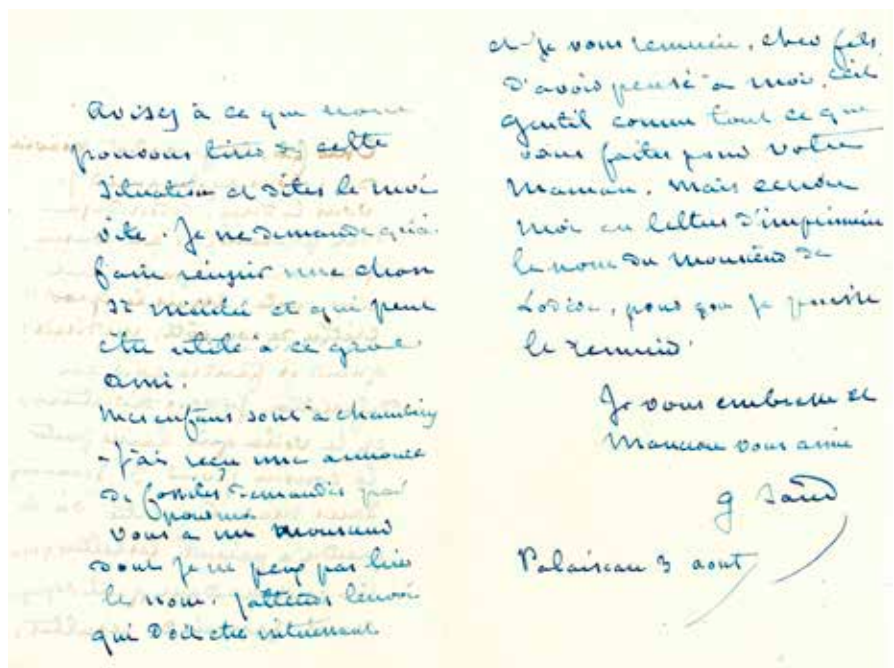 Avisez à ce que nous
pouvons tirer de cette
situation et dites le moi
vite. Je ne demande qu'à
faire réussir une chose
si méritée et qui peut
être utile à ce gros
ami.
Mes enfans sont à Chambéry
- J'ai reçu une annonce
de fossiles demandés par
pour moi
vous à un monsieur
dont je ne peux pas lire
le nom. J'attends l'envoi
qui doit être intéressant
et je vous remercie, cher fils
d'avoir pensé à moi. C'est
gentil comme tout ce que
vous faites pour votre
maman. Mais écrivez
moi en lettres d'imprimerie
le nom du monsieur de
Lodève, pour que je puisse
le remercier.
Je vous embrasse et
Manceau vous aime
g Sand
Palaiseau 3 aout